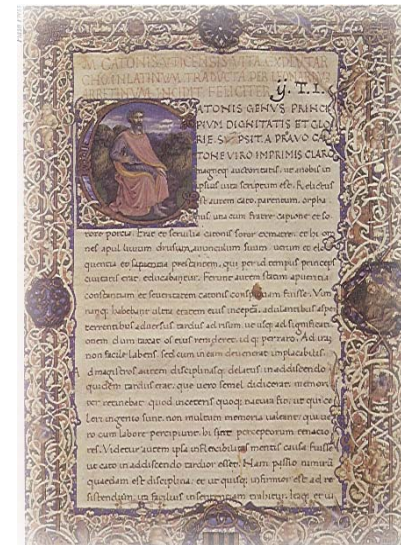 M. CATONIS VTICENSIS VITA EX PLVTAR
CHO IN LATINVM TRADVCTA PER LEONARDVM
ARRETINVM INCIPIT FELICITER
y. T. I.
CATONIS GENVS PRINCI
PIVM DIGNITATIS ET GLO
RIE SVMPSIT A PRAVO CA
TONE VIRO IMPRIMIS CLARO
magneq; auctoritatis. ut a nobis in
ipsius vita scriptum est. Relictus
est autem cato, parentum, orpha
nus una cum fratre capione et so
rore porcia. Erat et servilia catonis soror ex matre. et hi om
nes apud livium drusum, avunculum suum. virum et elo
quentia et sapientia prestantem, qui per id tempus princeps
civitatis erat, educabantur. Ferunt autem statim a pueritia
constantiam et severitatem catonis conspicuam fuisse. Vim
nunq; habebant ultra etatem eius incepta. adulantibus asper
terrentibus adversus. tardus ad risum. ut usq; ad significati
onem dum taxat os eius renderet. idq; perraro. Ad iram
non facile labens. sed cum in eam devenerat implacabilis
ad magistros autem disciplinasq; delatus. in addiscendo
quidem tardus erat, que vero semel didicerat, memori
ter retinebat. quod in ceteris quoq; natura fit, ut qui ce
leri ingenio sunt, non multum memoria valeant, qui ve
ro cum labore percipiunt, hi sint perceptorum tenacio
res. Videtur autem ipsa inflexibilitas mentis causa fuisse
ut cato in addiscendo tardior esset. Nam passio nimirum
quaedam est disciplina, et ut quisq; infirmior est ad re
sistendum, ita facilius in sententiam trahitur.